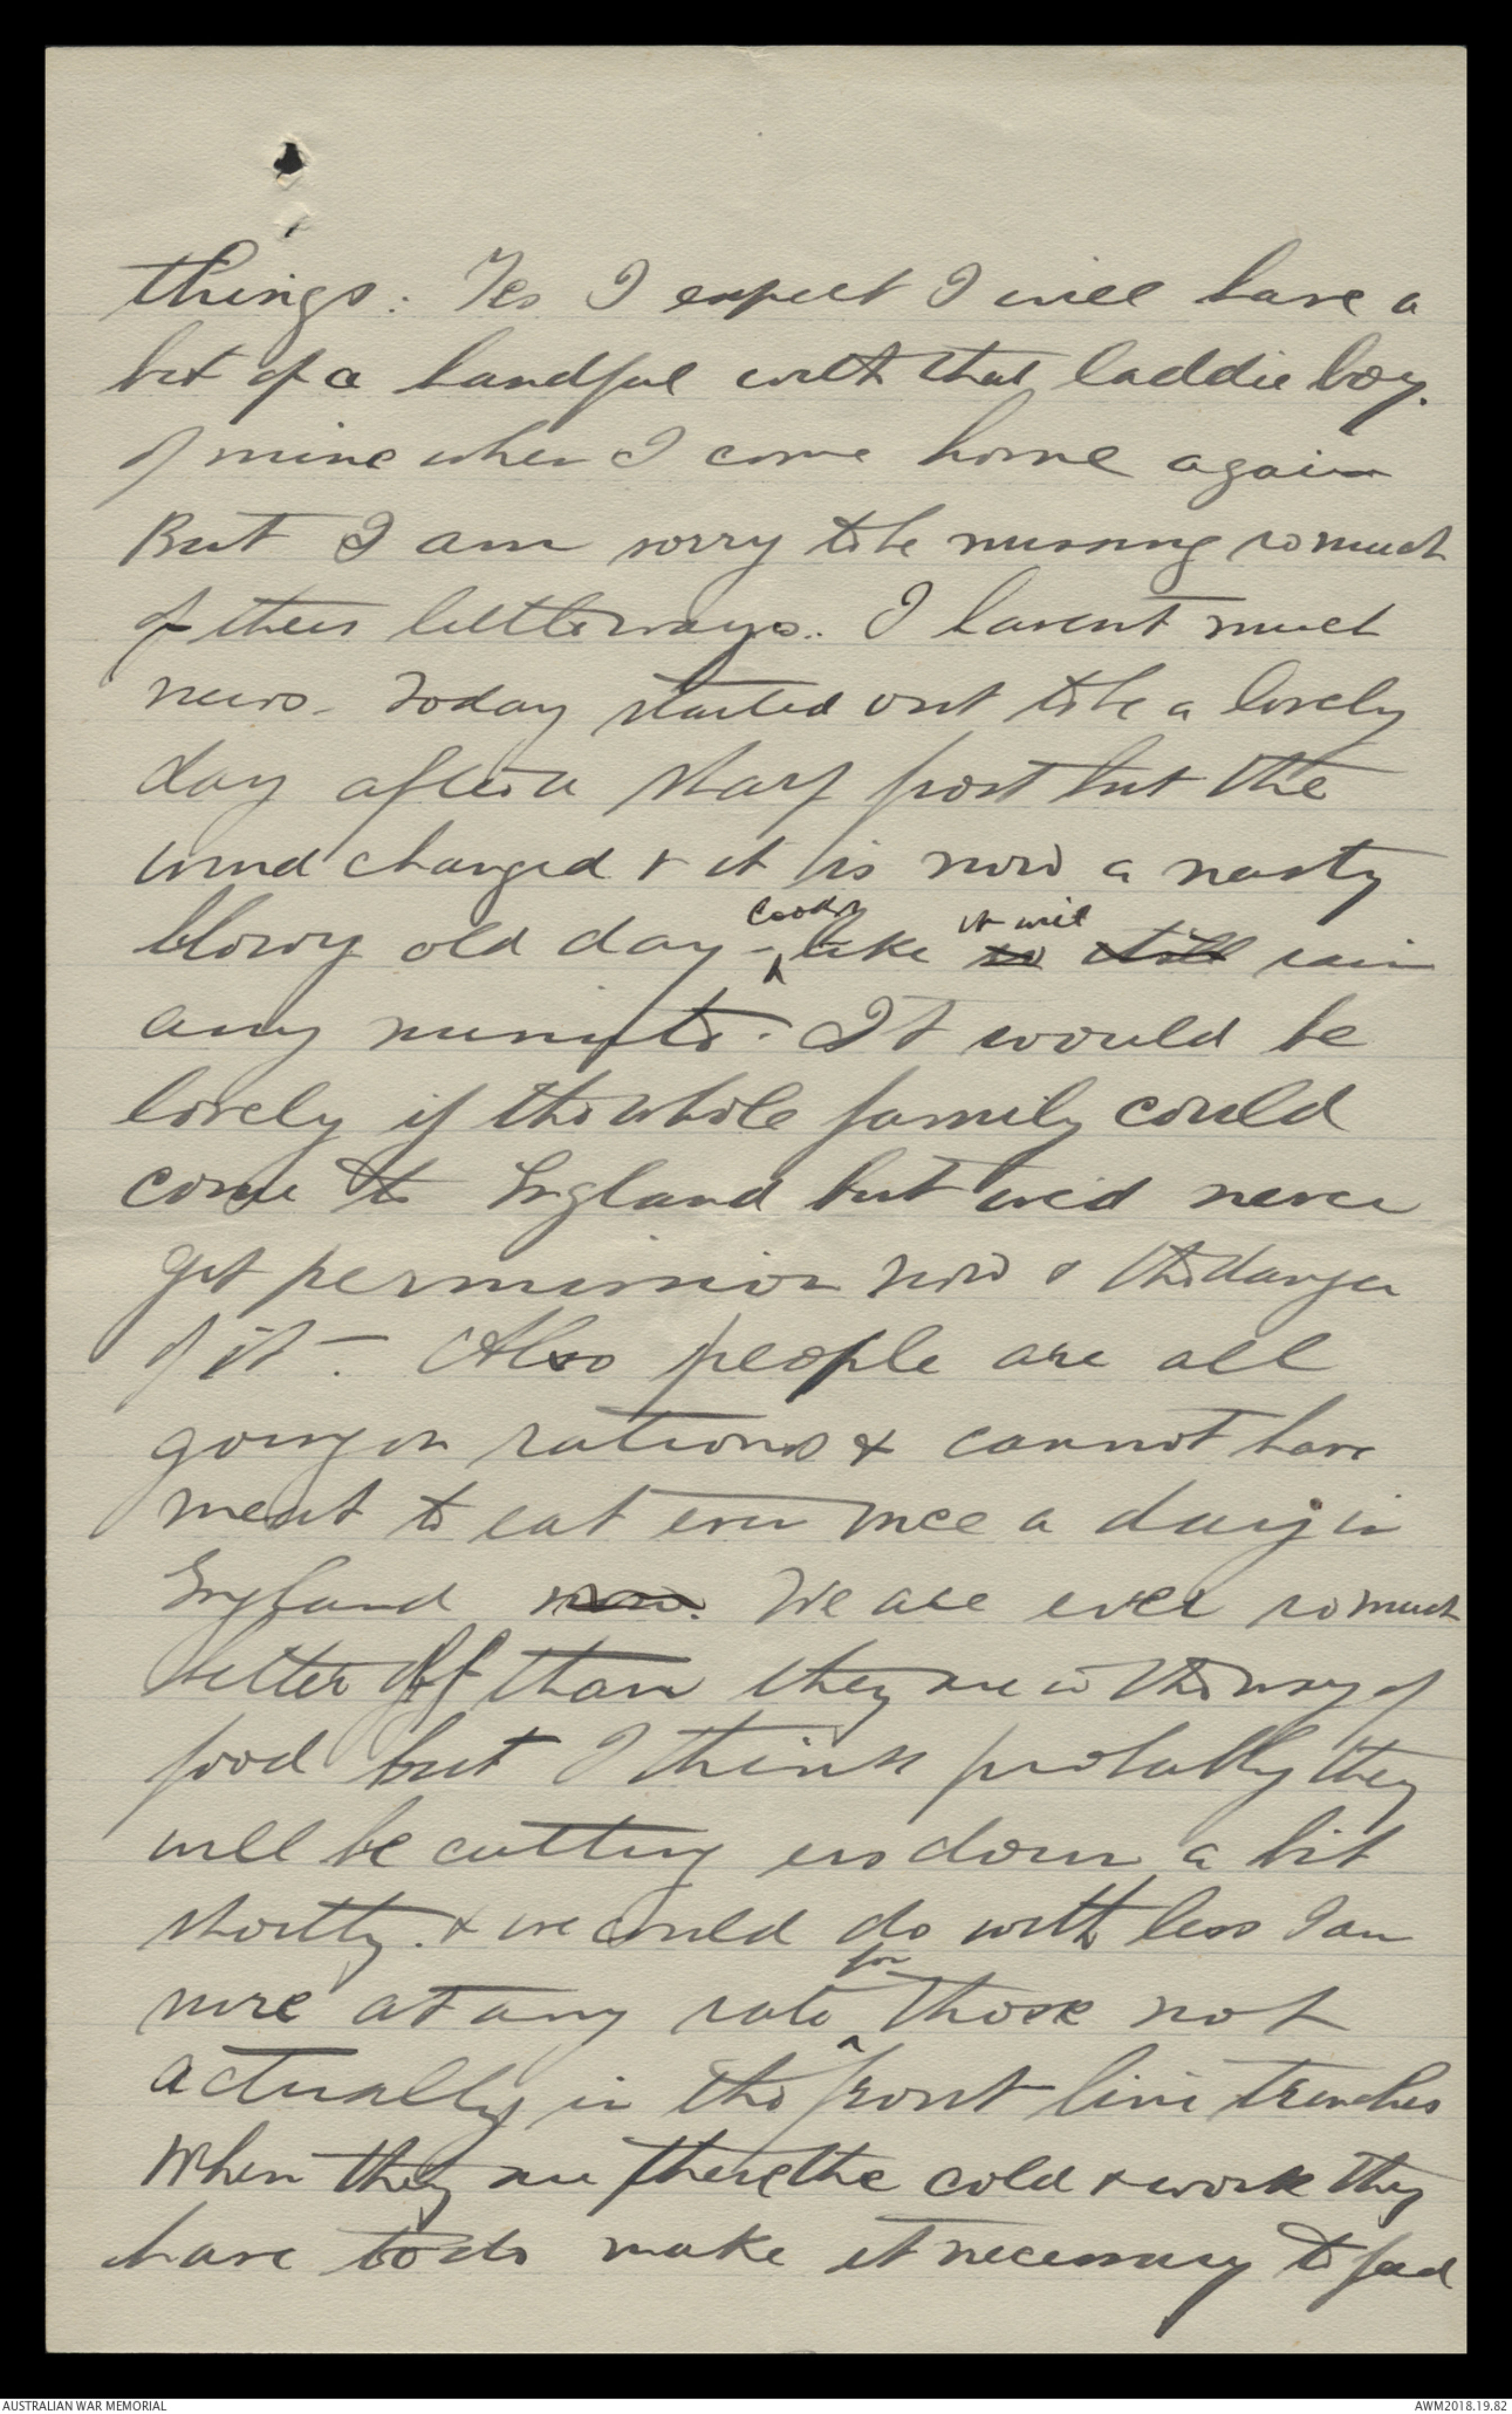 things. Yes I expect I will have a
bit of a handful with that laddie boy.
of mine when I come home again
But I am sorry to be missing so much
of their little ways.. I havent much
news - Today started out to be a lovely
day after a sharp frost but the
wind changed & it is now a nasty
blowy old day - looks like it will rain
any minute. It would be
lovely if the whole family could
come to England but we'd never
get permission now & the danger
of it - Also people are all
going on rations & cannot have
meat to eat even once a day in
England now. We are ever so much
better off than they are in the way of
food but I think probably they
will be cutting us down a bit
shortly. & we could do with less I am
sure at any rate for those not
actually in the front line trenches
When they are there the cold & work they
have to do make it necessary to feed
AUSTRALIAN WAR MEMORIAL
AWM2018.19.82